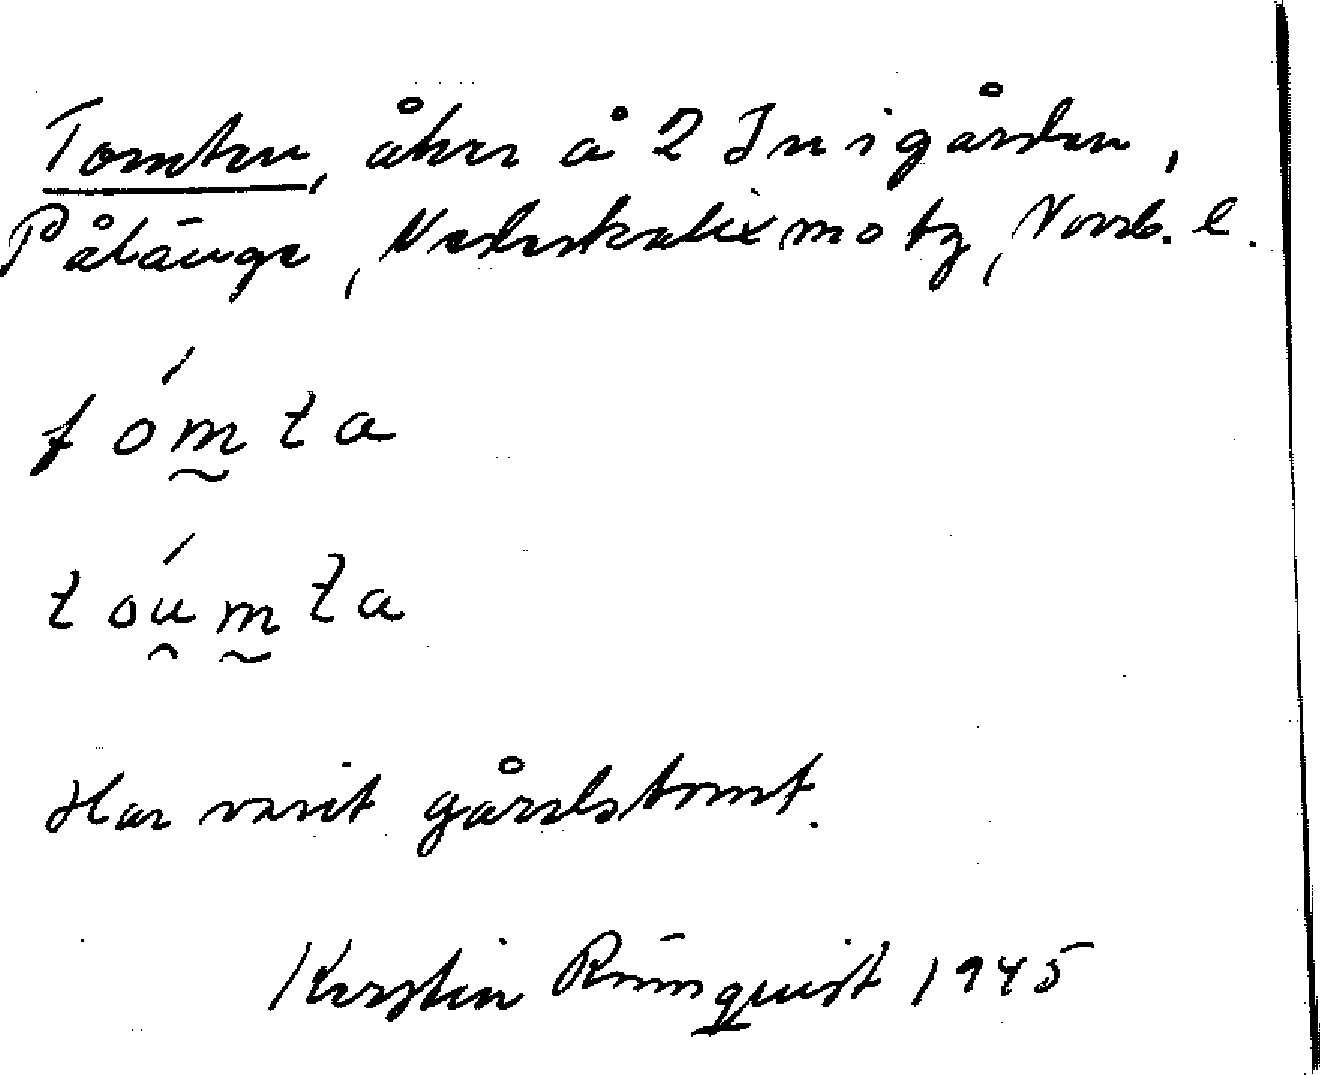 Tomten, åker å 2 Inigården,
Pålänge, Nederkalix m o tg, Norrb. l.
tómta
toúmta
Har varit gårdstomt.
Kerstin Rönnquist 1945